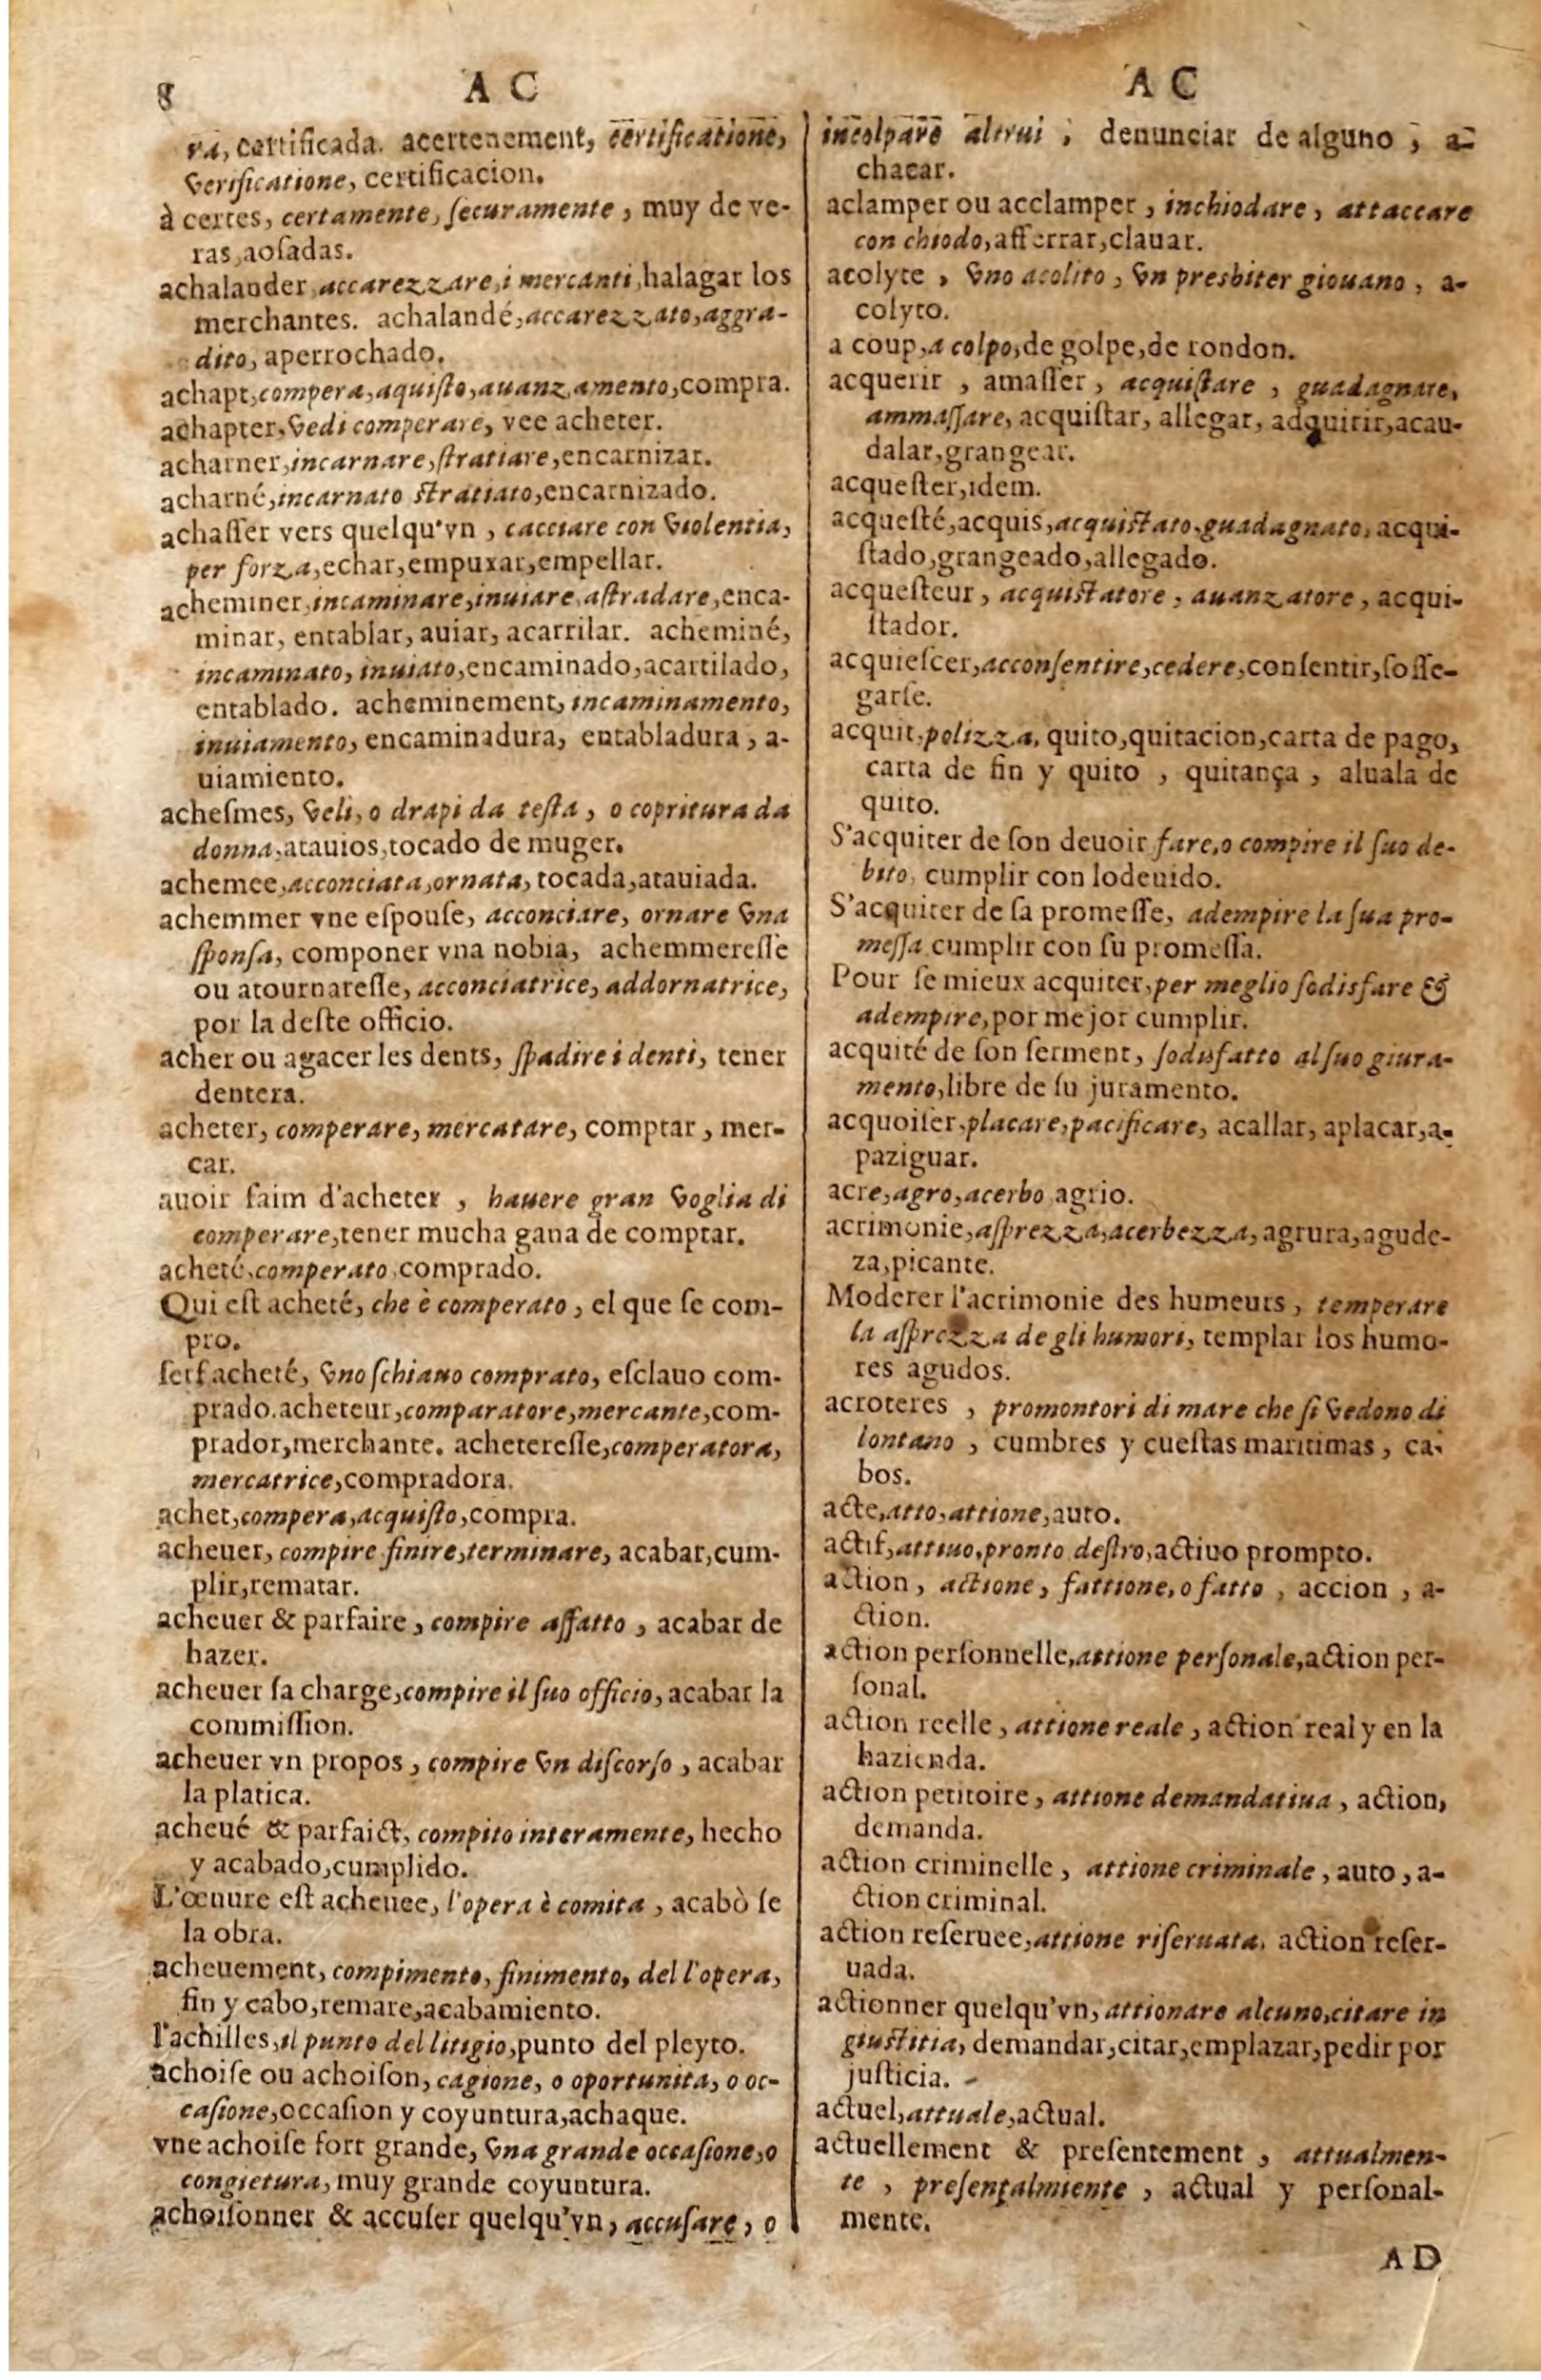 8 A C
ra, certificada. acertenement, certificatione,
verificatione, certificacion.
à certes, certamente, ſecuramente, muy de ve-
ras, aoſadas.
achalander, accarezzare, i mercanti, halagar los
merchantes. achalandé, accarezzato, aggra-
dito, aperrochado.
achapt, compera, aquiſto, auanzamento, compra.
achapter, vedi comperare, vee acheter.
acharner, incarnare, ſtratiare, encarnizar.
acharné, incarnato ſtratiato, encarnizado.
achaſſer vers quelqu'vn, cacciare con violentia,
per forza, echar, empuxar, empellar.
acheminer, incaminare, inuiare, aſtradare, enca-
minar, entablar, auiar, acarrilar. acheminé,
incaminato, inuiato, encaminado, acartilado,
entablado. acheminement, incaminamento,
inuiamento, encaminadura, entabladura, a-
uiamiento.
acheſmes, veli, o drapi da teſta, o copritura da
donna, atauios, tocado de muger.
achemee, acconciata, ornata, tocada, atauiada.
achemmer vne eſpouſe, acconciare, ornare vna
ſponſa, componer vna nobia, achemmereſſe
ou atournareſſe, acconciatrice, addornatrice,
por la deſte officio.
acher ou agacer les dents, ſpadire i denti, tener
dentera.
acheter, comperare, mercatare, comptar, mer-
car.
auoir faim d'acheter, hauere gran voglia di
comperare, tener mucha gana de comptar.
acheté, comperato, comprado.
Qui eſt acheté, che è comperato, el que ſe com-
pro.
ſerf acheté, vno ſchiauo comprato, eſclauo com-
prado. acheteur, comparatore, mercante, com-
prador, merchante. achetereſſe, comperatora,
mercatrice, compradora.
achet, compera, acquiſto, compra.
acheuer, compire finire, terminare, acabar, cum-
plir, rematar.
acheuer & parfaire, compire affatto, acabar de
hazer.
acheuer ſa charge, compire il ſuo officio, acabar la
commiſſion.
acheuer vn propos, compire vn diſcorſo, acabar
la platica.
acheué & parfaict, compito interamente, hecho
y acabado, cumplido.
L'œuure eſt acheuee, l'opera è comita, acabò ſe
la obra.
acheuement, compimento, finimento, del l'opera,
fin y cabo, remare, acabamiento.
l'achilles, il punto del litigio, punto del pleyto.
achoiſe ou achoiſon, cagione, o oportunita, o oc-
caſione, occaſion y coyuntura, achaque.
vne achoiſe fort grande, vna grande occaſione, o
congietura, muy grande coyuntura.
achoiſonner & accuſer quelqu'vn, accuſare, o
A C
incolpare altrui, denunciar de alguno, a-
chacar.
aclamper ou acclamper, inchiodare, attaccare
con chiodo, afferrar, clauar.
acolyte, vno acolito, vn presbiter giouano, a-
colyto.
a coup, a colpo, de golpe, de rondon.
acquerir, amaſſer, acquiſtare, guadagnare,
ammaſſare, acquiſtar, allegar, adquirir, acau-
dalar, grangear.
acqueſter, idem.
acqueſté, acquis, acquiſtato, guadagnato, acqui-
ſtado, grangeado, allegado.
acqueſteur, acquiſtatore, auanzatore, acqui-
ſtador.
acquieſcer, acconſentire, cedere, conſentir, ſoſſe-
garſe.
acquit, polizza, quito, quitacion, carta de pago,
carta de fin y quito, quitança, aluala de
quito.
S'acquiter de ſon deuoir fare, o compire il ſuo de-
bito, cumplir con lodeuido.
S'acquiter de ſa promeſſe, adempire la ſua pro-
meſſa cumplir con ſu promeſſa.
Pour ſe mieux acquiter, per meglio ſodisfare &
adempire, por mejor cumplir.
acquité de ſon ſerment, ſodisfatto al ſuo giura-
mento, libre de ſu juramento.
acquoiſer, placare, pacificare, acallar, aplacar, a-
paziguar.
acre, agro, acerbo agrio.
acrimonie, aſprezza, acerbezza, agrura, agude-
za, picante.
Moderer l'acrimonie des humeurs, temperare
la aſprezza de gli humori, templar los humo-
res agudos.
acroteres, promontori di mare che ſi vedono di
lontano, cumbres y cueſtas maritimas, ca-
bos.
acte, atto, attione, auto.
actif, attiuo, pronto deſtro, actiuo prompto.
action, actione, fattione, o fatto, accion, a-
ction.
action perſonnelle, attione perſonale, action per-
ſonal.
action reelle, attione reale, action real y en la
hazienda.
action petitoire, attione demandatiua, action,
demanda.
action criminelle, attione criminale, auto, a-
ction criminal.
action reſeruee, attione riſeruata, action reſer-
uada.
actionner quelqu'vn, attionare alcuno, citare in
giuſtitia, demandar, citar, emplazar, pedir por
juſticia.
actuel, attuale, actual.
actuellement & preſentement, attualmen-
te, preſentalmiente, actual y perſonal-
mente.
AD